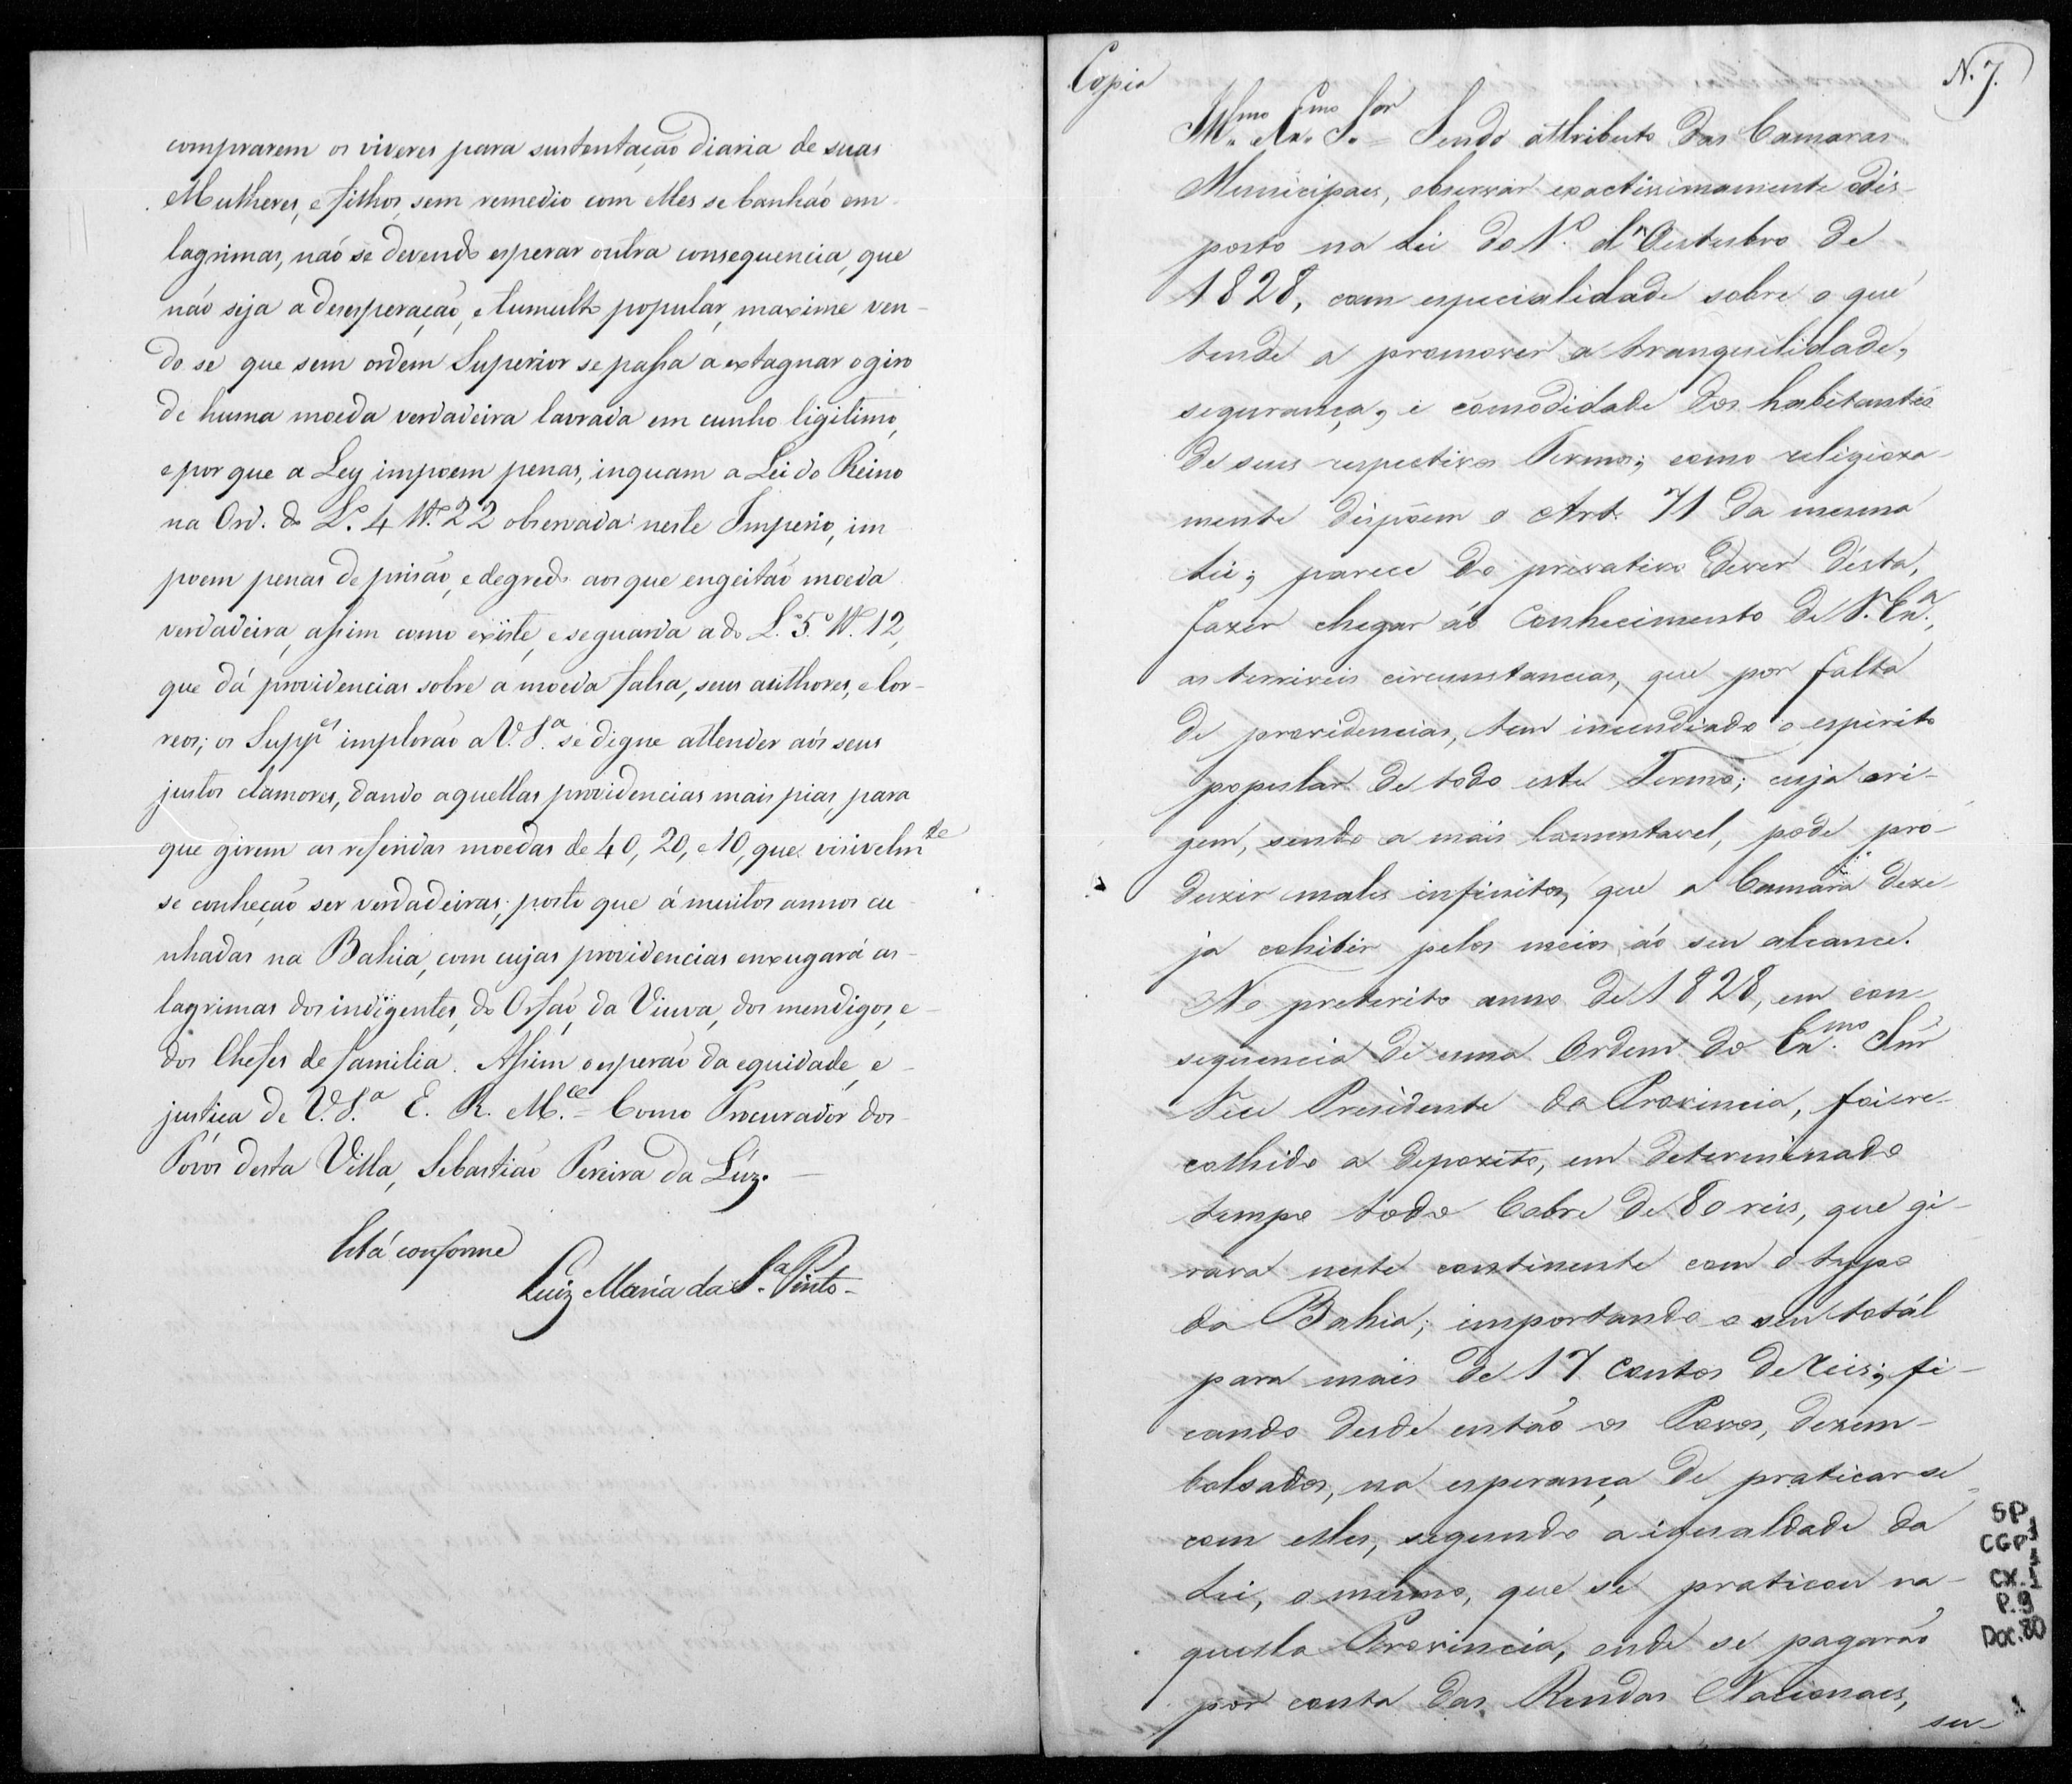 comprarem os viveres para sustentação diaria de suas
Mulheres, e filhos, sem remedio com elles se banhão em
lagrimas, não se devendo esperar outra consequencia, que
não seja a deseperação, e tumulto popular, maxime ven-
do se que sem ordem Superior se passa a extagnar o giro
de huma moeda verdadeira lavrada em cunho ligitimo,
e por que a Ley impoem penas, inquam a Lei do Reino
na Ord. do L.º 4 tt.º 22 observada neste Imperio, im
poem penas de prisão, e degredo aos que engeitão moeda
verdadeira, assim como existe, e se guarda a do L. 5.º tt.º 12,
que dá providencias sobre a moeda falsa, seus authores, e Cor-
reos; os Supp.es implorão a V. S.ª se digne attender aós seus
justos clamores, dando aquellas providencias mais pias, para
que girem as referidas moedas de 40, 20, e 10, que visivelmte
se conheção ser verdadeiras, posto que á muitos annos cu
nhadas na Bahia, com cujas providencias enxugará as
lagrimas dos indigentes, do Orfão, da Viuva, dos mendigos, e
dos Chefes de familia. Assim o esperão da equidade, e
justiça de V. S.ª E. R. M.ce = Como Procurador dos
Póvos desta Villa, Sebastião Pereira da Lúz.
Está conforme
Luiz Maria da S.ª Pinto
Copia
N. 7.
Illmo. Exmo. Sor. = Sendo attributo das Camaras
Municipaes, observar exactissimamente o dis-
posto na Lei do 1.º d' Outubro de
1828, com especialidade sobre o que
tende a promover a tranquilidade,
segurança, e cómodidade dos habitantes
de seus respectivos Termos; como religioza-
mente dispõem o Art. 71 da mesma
Lei; parece do privativo dever désta,
fazer chegar áo Conhecimento de V. Exª.,
as terriveis circunstancias, que por falta
de providencias, tem incendiado o espirito
popular de todo este Termo; cuja ori-
gem, sendo a mais lamentavel, póde pro-
duzir males infinitos, que a Camara deze-
ja cohibir pelos meios áo seu alcance.
No preterito anno de 1828, em con-
sequencia de uma Ordem do Exmo. Snr
Vice Presidente da Provincia, foi re-
colhido a depozito, em determinado
tempo todo Cobre de 80 reis, que gi-
rava neste continente com o typo
da Bahia; importando o seu totál
para mais de 17 Contos de reis; fi-
cando desde então os Povos, dezem-
bolsados, na esperança de praticar-se
com elles, segundo a igualdade da
Lei, o mesmo, que se praticou na-
quella Provincia, onde se pagarão
por conta das Rendas Nacionaes,
SP
CGP 1
CX. 1
P. 9
Doc. 80